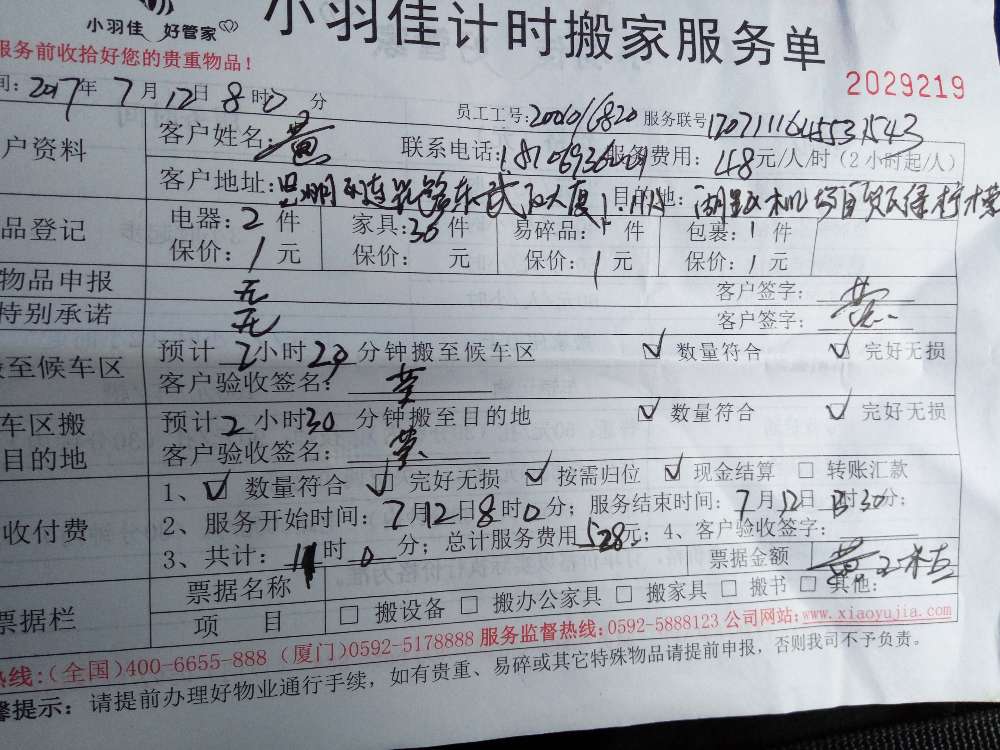 小羽佳 好管家
小羽佳计时搬家服务单
服务前收拾好您的贵重物品!
2029219
间: 2017年 7月12日 8时0分 员工工号: 服务联号
户资料 客户姓名: 黄 联系电话: 服务费用: 48元/人/时(2小时起/人)
客户地址: 目的地:
品登记 电器: 2 件 家具: 30 件 易碎品: 件 包裹: 1 件
保价: 1 元 保价: 元 保价: 1 元 保价: 1 元
物品申报 无 客户签字: 黄
特别承诺 无 客户签字:
搬至候车区 预计 2小时 20 分钟搬至候车区 ✓ 数量符合 ✓ 完好无损
客户验收签名: 黄
车区搬 预计 2 小时 30 分钟搬至目的地 ✓ 数量符合 ✓ 完好无损
目的地 客户验收签名: 黄
1、☑ 数量符合 ☑ 完好无损 ☑ 按需归位 ☑ 现金结算 □ 转账汇款
收付费 2、服务开始时间: 7月12日8时0分; 服务结束时间: 7月12日 时30分;
3、共计: 11 时 0 分; 总计服务费用 528元; 4、客户验收签字:
票据栏 票据名称 票据金额
项 目 □ 搬设备 □ 搬办公家具 □ 搬家具 □ 搬书 □ 其他:
热线:(全国)400-6655-888 (厦门)0592-5178888 服务监督热线:0592-5888123 公司网站:www.xiaoyujia.com
馨提示: 请提前办理好物业通行手续, 如有贵重、易碎或其它特殊物品请提前申报, 否则我司不予负责。